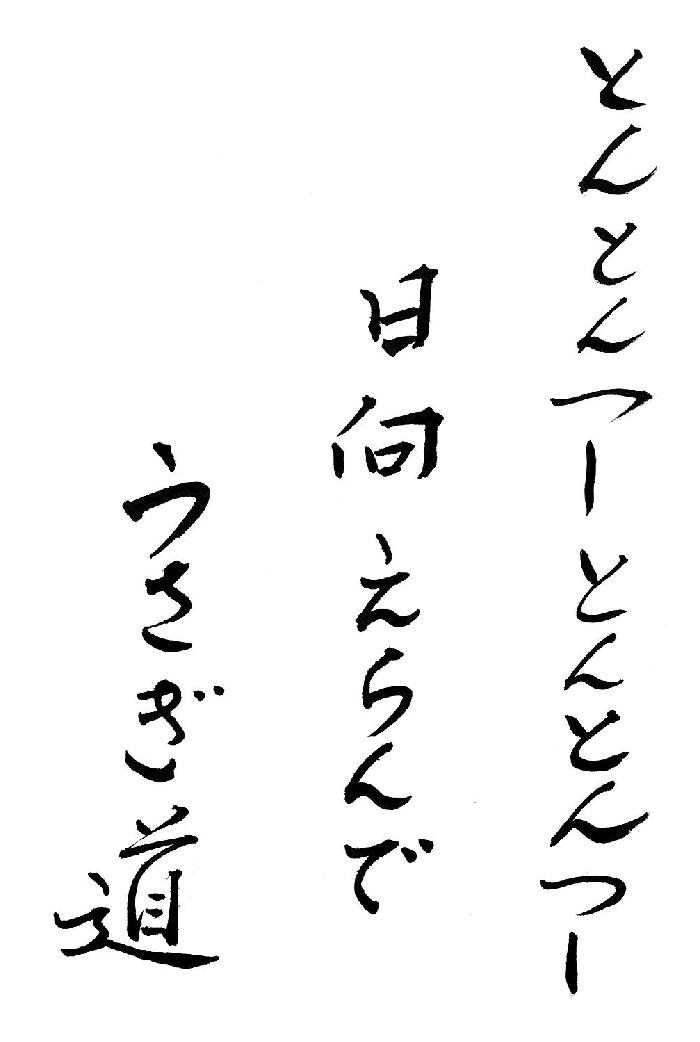 とんとんつーとんとんつー
日向えらんで
うさぎ道